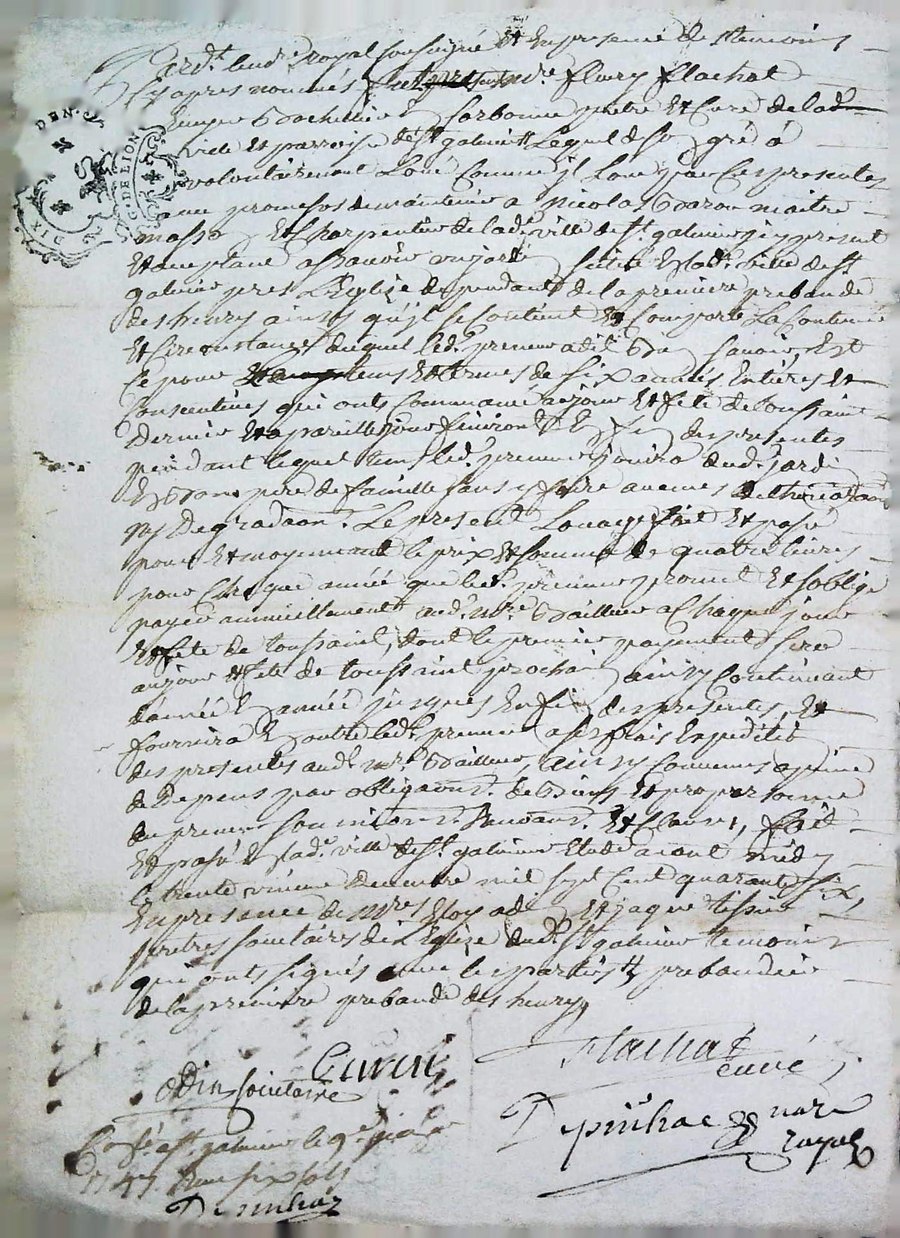 DIX DEN. G. DE LION
Pard.t le nd.e royal soussigné Et En presence des temoins
Cy apres nommés fut mre fleury flachat
Sorbonne prêtre Et Curé de lad.
ville et parroisse de St galmier Lequel de So gré a
volontairement Loué Comme jl Loue par Ces presentes
avec promesses de maintenir a nicolas maitre
masso Et Charpentier de lad. ville de St. galmier jcy present
Et acceptant assavoir un jardi Situé En lad. ville de St
galmier pres L'Eglize dependant de la premiere prebande
des henry ainsy qu'jl se Contient Et Comporte La Contenue
Et Circonstances duquel led. preneur a dit Savoir, Est
Ce pour tems Et termes de Six années Entières Et
Consecutives qui onts Commancé au jour Et fete de toussaint
Dernier Et a pareille jour finiront Et des presentes
pendant lequel tems led. preneur jouira dud. jardi
En bon pere de famille sans y faire aucunes
ny Degradaon. Le present Louage fait Et passé
pour Et moyennant le prix Et somme de quatre livres
pour Chaque année que led. preneur promet Et s'oblige
payer annuellement aud. mre Bailleur a Chaque jour
Et fete de toussaint, dont le premier payement sera
au jour Et fete de toussaint prochai ainsy Continuant
d'année E année jusques En fi des presentes, Et
fournira E outre led. preneur a ses frais Expeditio
des presentes aud. mre Bailleur, ainsy Convenu a peine
de Depens par obligaons de biens Et propre personne
du preneur soumissions Renons. Et Clauses, fait
Et passé E lad. ville de St. galmier Etude avant midy
le trente unieme Decembre mil sept Cent quarante Six,
En presence de mres Eloy odi Et jaque tissier
pretres societaires de L'Eglize dud. St galmier temoins
qui onts signés avec les parties prebandier
de la premiere prebande des henry
Flachat
curé
Odin socictaire
Depinhac nore
royal
Con.lé a St. galmier le 9e janer
1747 Reçu six sols
Depinhac